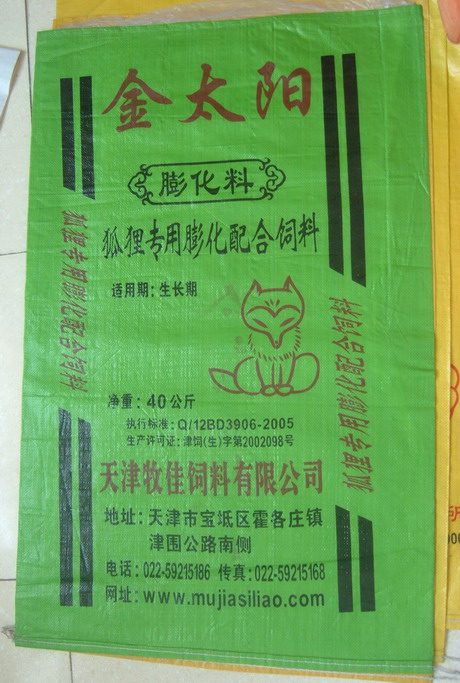 金太阳
膨化料
狐狸专用膨化配合饲料
适用期：生长期
狐狸专用膨化配合饲料
狐狸专用膨化配合饲料
净重：40公斤
执行标准：Q/12BD3906-2005
生产许可证：津饲(生)字第2002098号
天津牧佳饲料有限公司
地址：天津市宝坻区霍各庄镇
津围公路南侧
电话：022-59215186 传真：022-59215168
网址：www.mujiasiliao.com